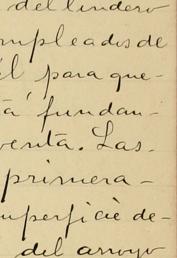 del lindero
mpleados de
él para que-
tá fundan-
venta. Las
primera-
uperficie de-
del arroyo